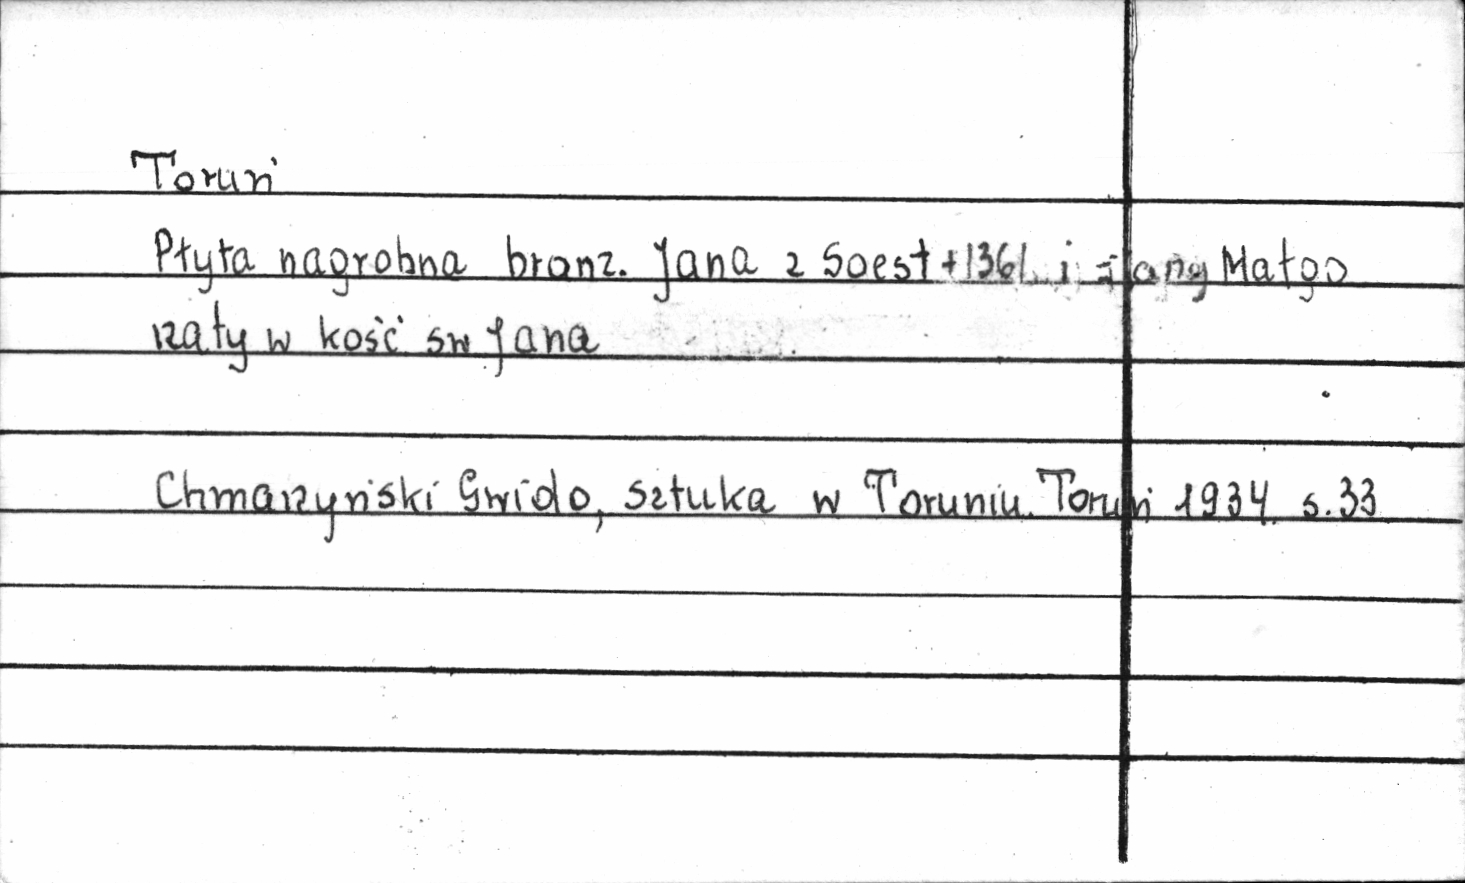 Toruń
Płyta nagrobna bronz. Jana z Soest +1361 i żony Małgo
rzaty w kość św Jana
Chmarzyński Gwido, Sztuka w Toruniu. Toruń 1934 s. 33